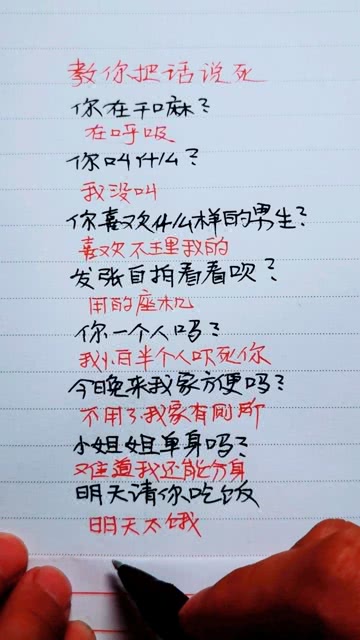 教你把话说死
你在干嘛？
在呼吸
你叫什么？
我没叫
你喜欢什么样的男生？
喜欢不理我的
发张自拍看看呗？
用的座机
你一个人吗？
我怕半个人吓死你
今晚来我家方便吗？
不用了我家有厕所
小姐姐单身吗？
难道我还能分身
明天请你吃饭
明天不饿